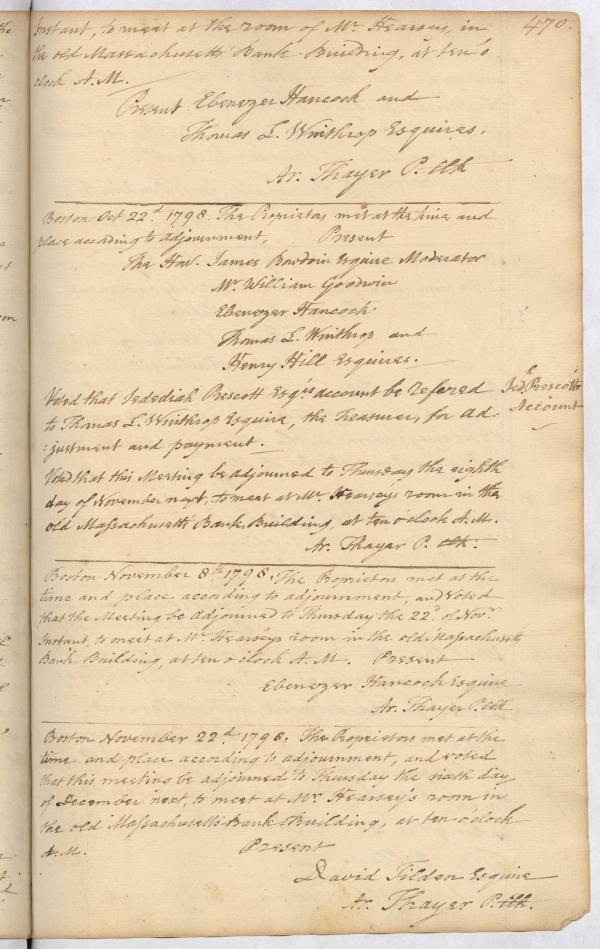 470.
Instant, to meet at the room of Mr. Hearsey, in
the old Massachusetts Bank Building, at ten o
clock A.M.
Present Ebenezer Hancock and
Thomas L. Winthrop Esquires.
Ar. Thayer P. Clk
Boston Oct 22d 1798. The Proprietors met at the time and
place according to adjournment, Present
The Hon. James Bowdoin Esquire Moderator
Mr. William Goodwin
Ebenezer Hancock
Thomas L. Winthrop and
Henry Hill Esquires.
Voted that Jedediah Prescott Esqrs account be refered
to Thomas L. Winthrop Esquire, the Treasurer, for ad-
:justment and payment.
Jedh. Prescott's
Account
Voted that this Meeting be adjourned to Thursday the eighth
day of November next, to meet at Mr. Hearseys room in the
old Massachusetts Bank Building, at ten o'clock A.M.
Ar. Thayer P. Clk.
Boston November 8th 1798. The Proprietors met at the
time and place according to adjournment, and voted
that the Meeting be adjourned to Thursday the 22d. of Novr.
Instant, to meet at Mr. Hearseys room in the old Massachusetts
Bank Building, at ten o'clock A.M. Present
Ebenezer Hancock Esquire
Ar. Thayer P. Clk
Boston November 22d 1798. The Proprietors met at the
time and place according to adjournment, and voted
that this meeting be adjourned to Thursday the sixth day
of December next, to meet at Mr. Hearsey's room in
the old Massachusetts Bank Building, at ten o'clock
A.M. Present
David Tilden Esquire
Ar. Thayer P. Clk.